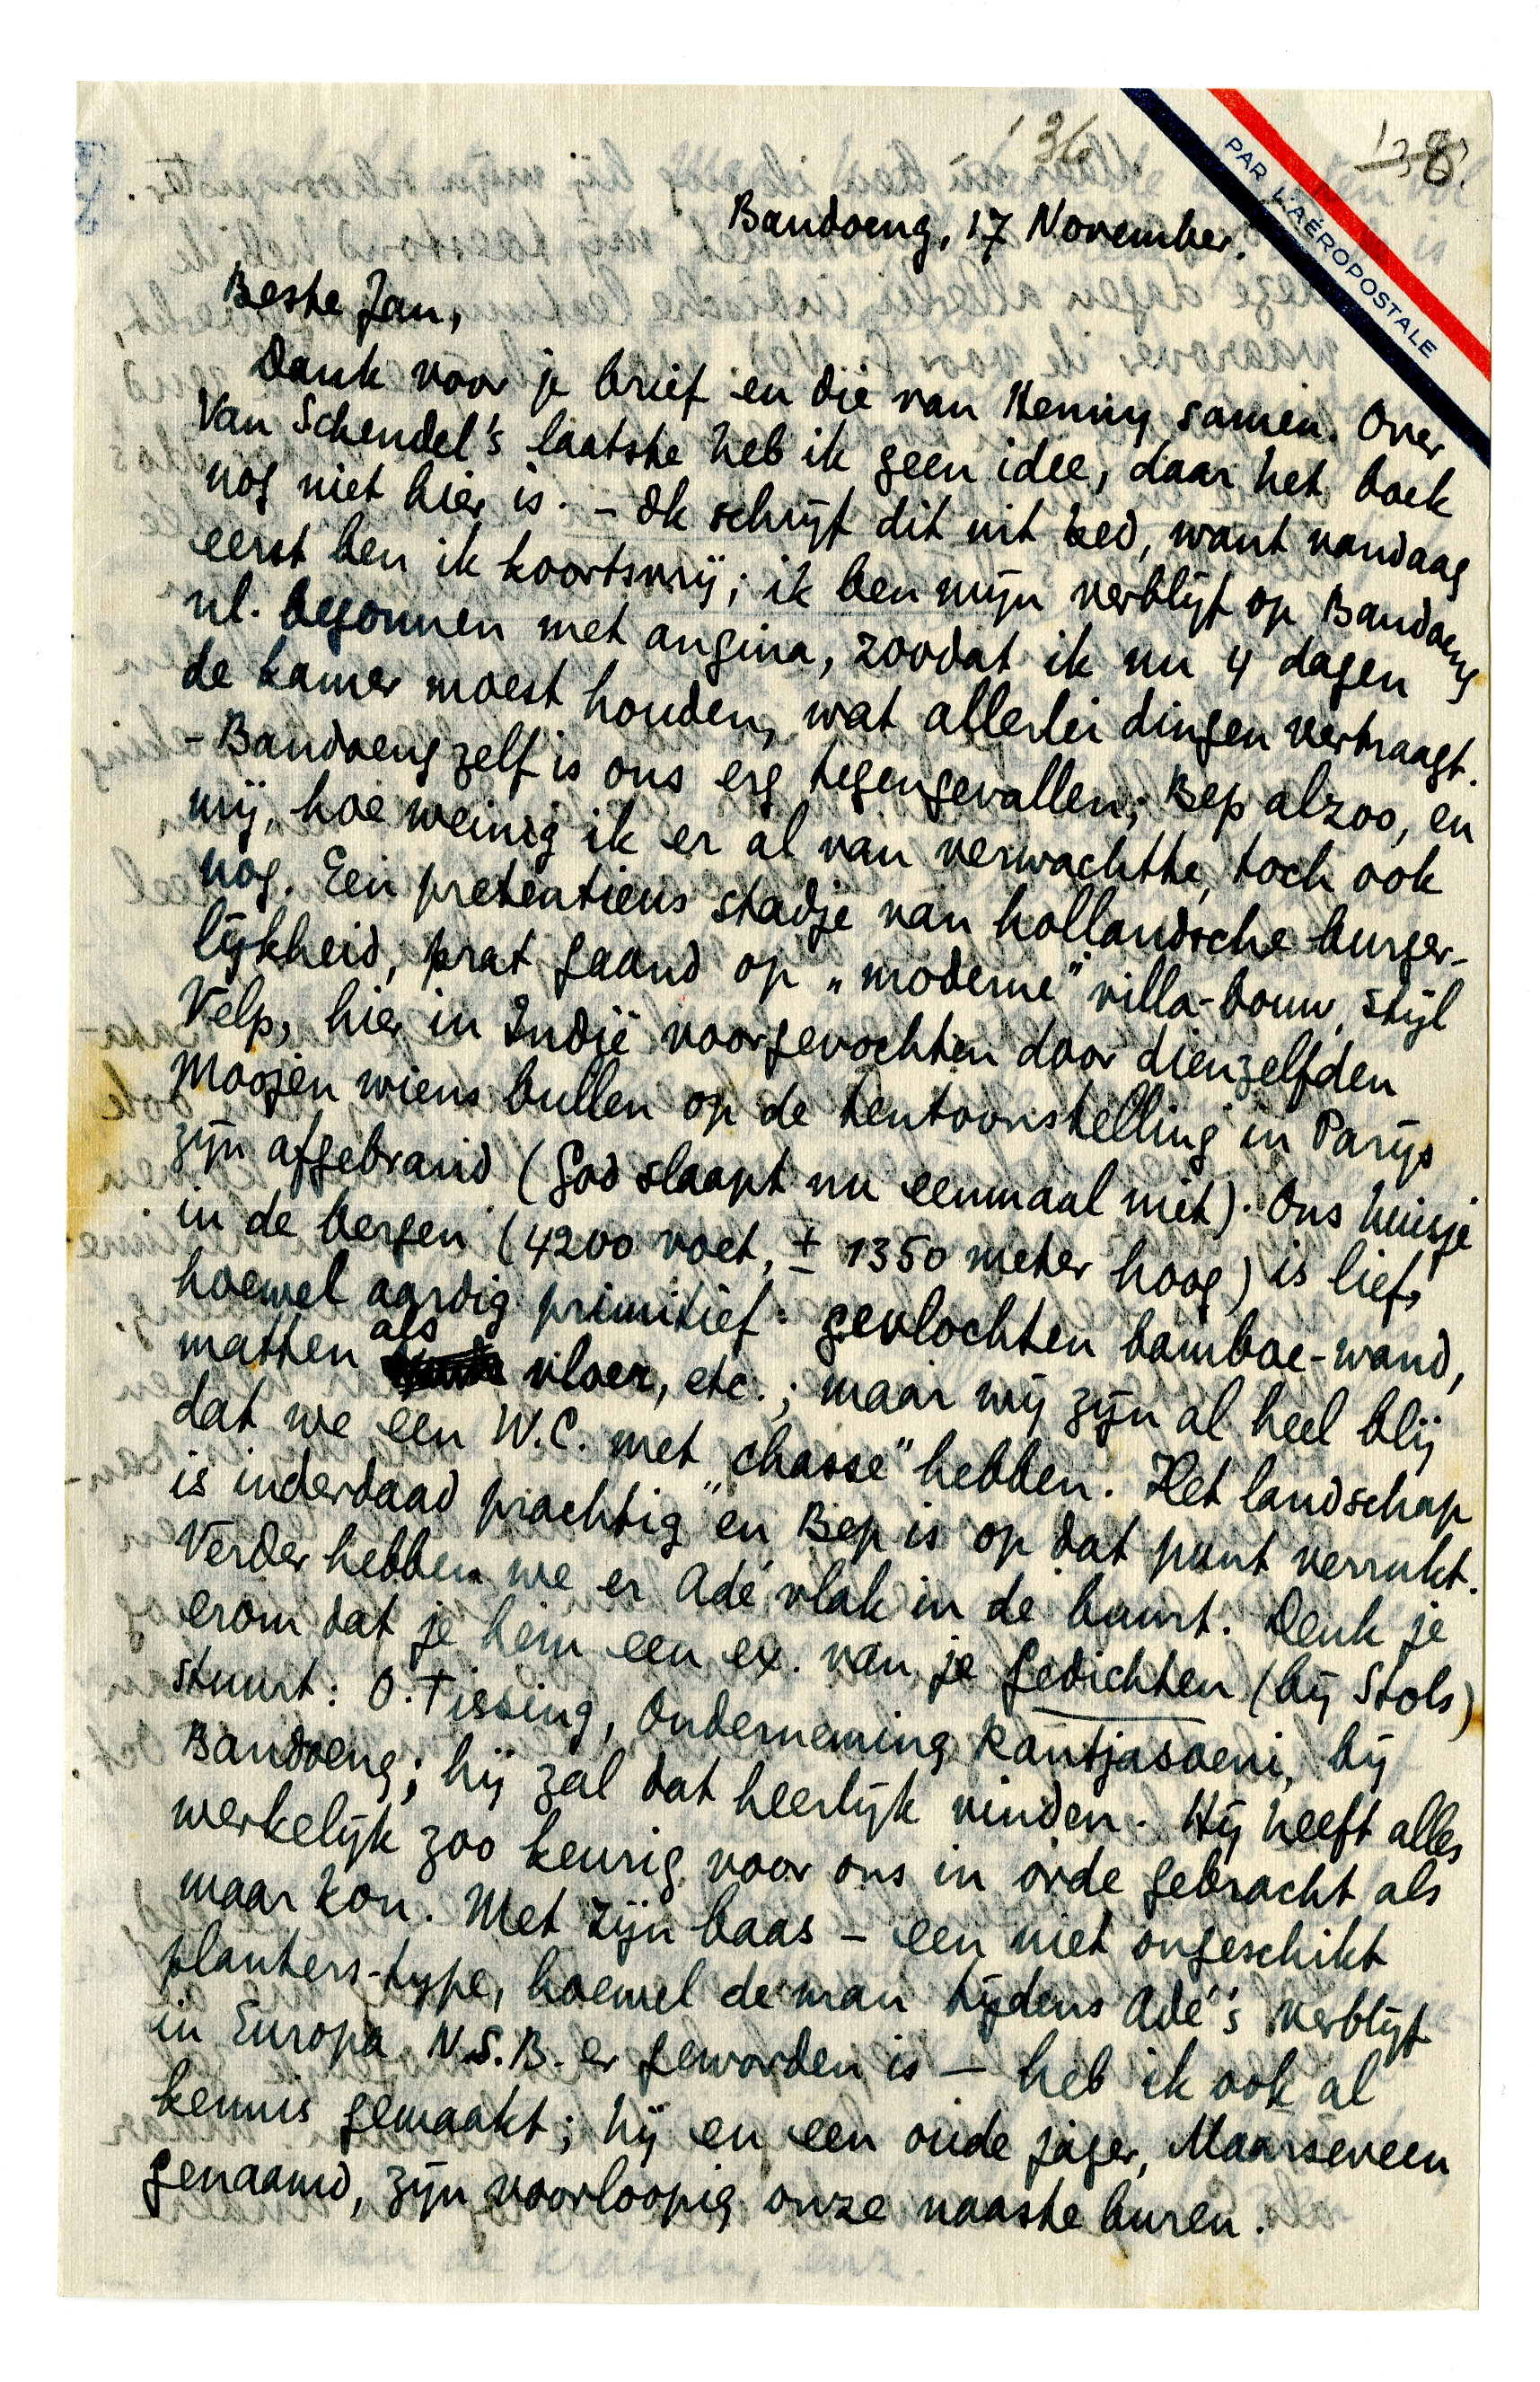 '36
138.
PAR L'AÉROPOSTALE
Bandoeng, 17 November.
Beste Jan,
Dank voor je brief en die van Henny samen. Over
Van Schendel's laatste heb ik geen idee, daar het boek
nog niet hier is. – Ik schrijf dit uit bed, want vandaag
eerst ben ik koortsvrij; ik ben mijn verblijf op Bandoeng
nl. begonnen met angina, zoodat ik nu 4 dagen
de kamer moest houden, wat allerlei dingen vertraagt.
– Bandoeng zelf is ons erg tegengevallen; Bep alzoo, en
mij, hoe weinig ik er al van verwachtte, toch ook
nog. Een pretentieus stadje van hollandsche burger-
lijkheid, prat gaand op „moderne" villa-bouw, stijl
Velp, hier in Indië voorgevochten door dienzelfden
Moojen wiens bullen op de tentoonstelling in Parijs
zijn afgebrand (God slaapt nu eenmaal niet). Ons huisje
in de bergen (4200 voet, ± 1350 meter hoog) is lief,
hoewel aardig primitief: gevlochten bamboe-wand,
matten als vloer, etc.; maar wij zijn al heel blij
dat we een W.C. met „chasse" hebben. Het landschap
is inderdaad prachtig en Bep is op dat punt verrukt.
Verder hebben we er Adé vlak in de buurt. Denk je
erom dat je hem een ex. van je Gedichten (bij Stols)
stuurt: O. Tissing, Onderneming Rantjasoeni, bij
Bandoeng; hij zal dat heerlijk vinden. Hij heeft alles
werkelijk zoo keurig voor ons in orde gebracht als
maar kon. Met zijn baas – een niet ongeschikt
planters-type, hoewel de man tijdens Adé's verblijf
in Europa N.S.B.er geworden is – heb ik ook al
kennis gemaakt; hij en een oude jager, Maarseveen
genaamd, zijn voorloopig onze naaste buren.